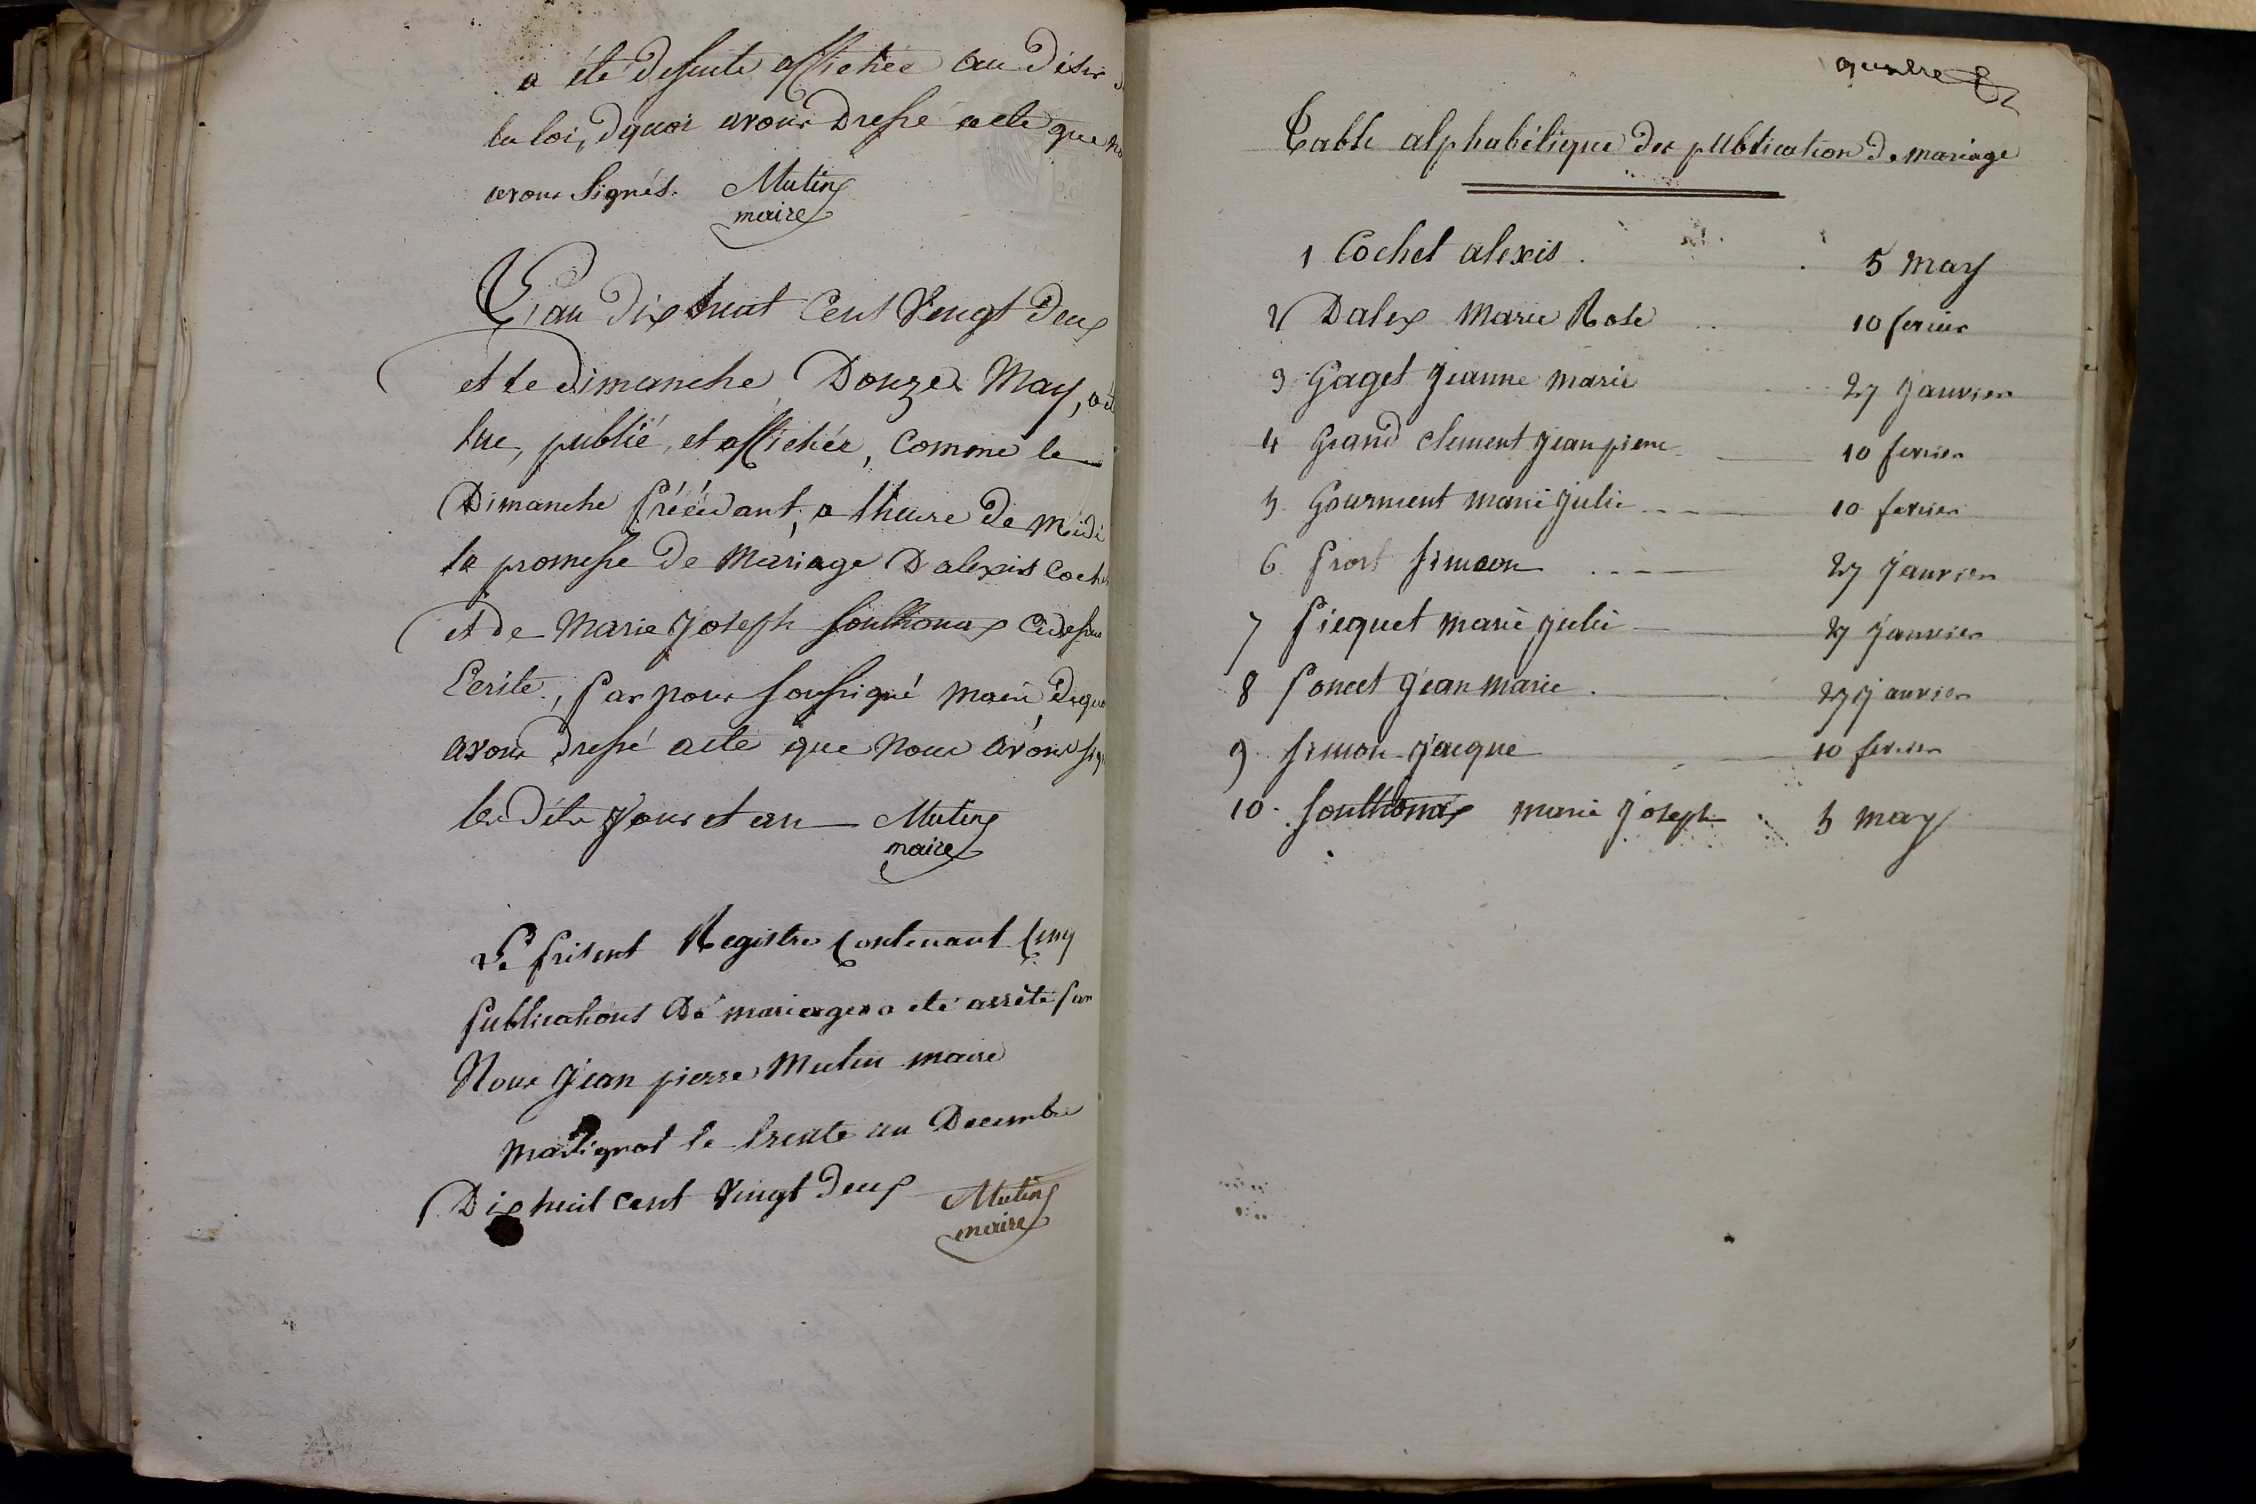 a été desuite affichée au désir
la loi, dquoi avons Dressé acte que
avons Signés. Mutin
maire
L'an dix huit Cent Vingt deux
et le dimanche Douze May, a
lue, publié, et affichée, Comme le
Dimanche Précédant, a lheure de Midi
la promesse de Mariage D'alexis Coch
et de Marie Joseph Southonax Cidessus
Ecrite, Par nous soussigné Maire, dequ
avons dressé acte que Nous avons sig
les dits Jour et an Mutin
maire
Le Présent Registre Contenant Cinq
Publications De mariages a été arrêté Par
Nous Jean pierre Mutin maire
Martignat le trente un Decembre
Dix huit cent vingt deux Mutin
maire
quatre
Table alphabétique des publication de mariage
1 Cochet alexis . 5 May
2 Dalex Marie Rose 10 fevrier
3 Gaget Jeanne Marie 27 Janvier
4 Grand clement Jean pierre 10 fevrier
5 Gourment marie Julie 10 fevrier
6 Prost Simeon 27 Janvier
7 Piequet marie Julie 27 Janvier
8 Poncet Jean marie 27 Janvier
9 Simon Jacque 10 fevrier
10 Southonax marie Joseph 5 may